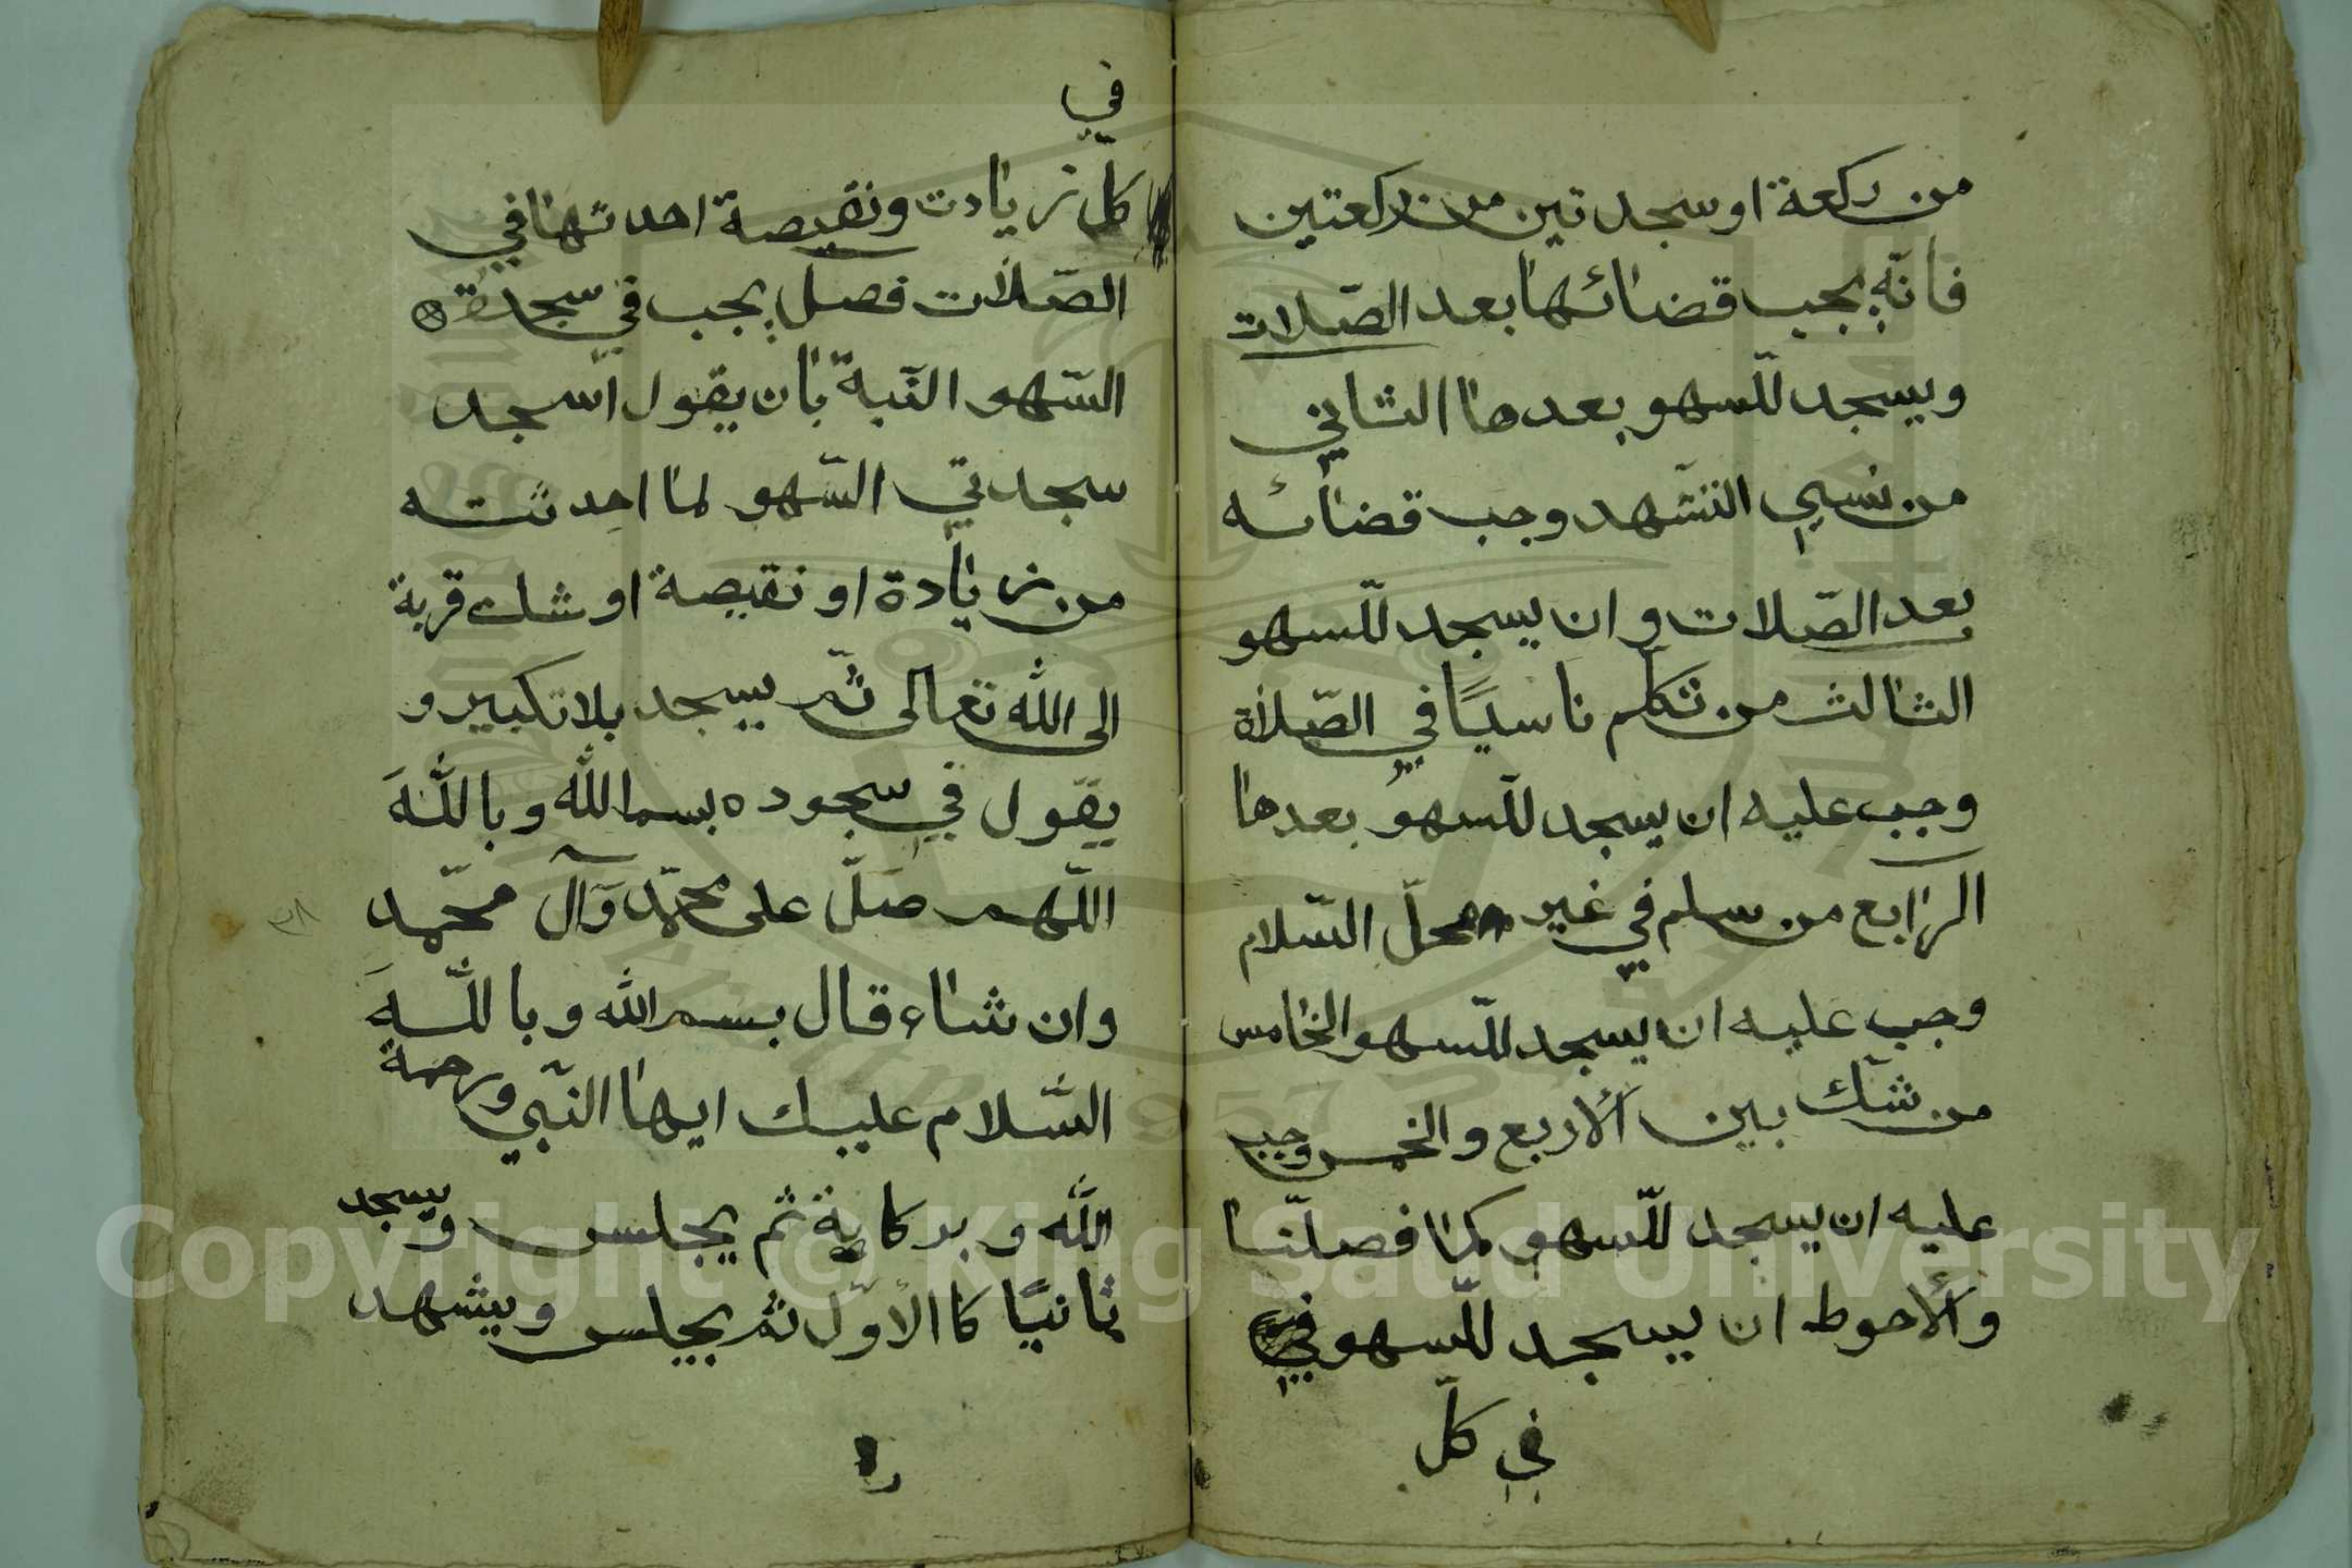 من ركعة او سجدتين من ركعتين
فانّه يجب قضائها بعد الصّلات
ويسجد للّسهو بعدها الثاني
من نسي التشّهد وجب قضائه
بعد الصّلات و ان يسجد للّسهو
الثالث من تكلّم ناسيًا في الصّلاة
وجب عليه ان يسجد للّسهو بعدها
الرّابع من سلم في غير محلّ السّلام
وجب عليه ان يسجد للّسهو الخامس
من شكّ بين الأربع والخمس وجب
عليه ان يسجد للّسهو كما فصلّنا
والأحوط ان يسجد للّسهو في
في كلّ
في
كلّ زيادت ونقيصة احدثها في
الصّلات فصل يجب في سجدة
السّهو النّية بان يقول اسجد
سجدتي السّهو لما احدثته
من زيادة او نقيصة او شك قربة
الى الله تعالى ثّم يسجد بلا تكبير و
يقول في سجوده بسم الله وباللّه
اللّهم صلّ على محمّد وآل محمّد
وان شاء قال بسم الله وباللّه
السّلام عليك ايها النّبي ورحمة
الله وبركاية ثم يجلس ويسجد
ثانيًا كا الأوّل ثم يجلس ويشهد
٣٨
Copyright © King Saud University
1957